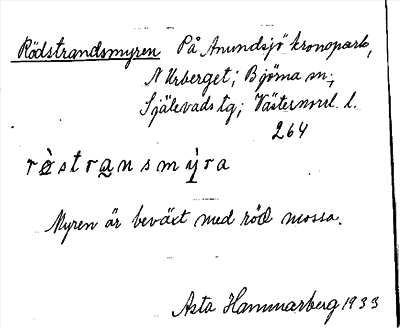 Rödstrandsmyren På Anundsjö kronopark,
N Urberget; Björna sn;
Själevads tg; Västernorrl. l.
264
rø̀stra̲nsmỳ̲ra
Myren är beväxt med röd mossa.
Asta Hammarberg 1933